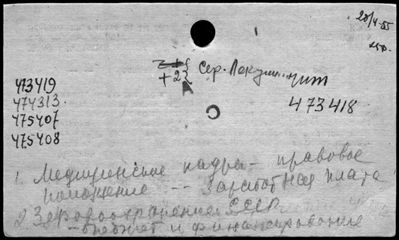 20/4-55
250.
+2 Сер. Докум. чит
473419
474313.
475407
475408
473418
1. Медицинские кадры - правовое
положение -- Заработная плата
2 Здравоохранение СССР
- бюджет и финансирование